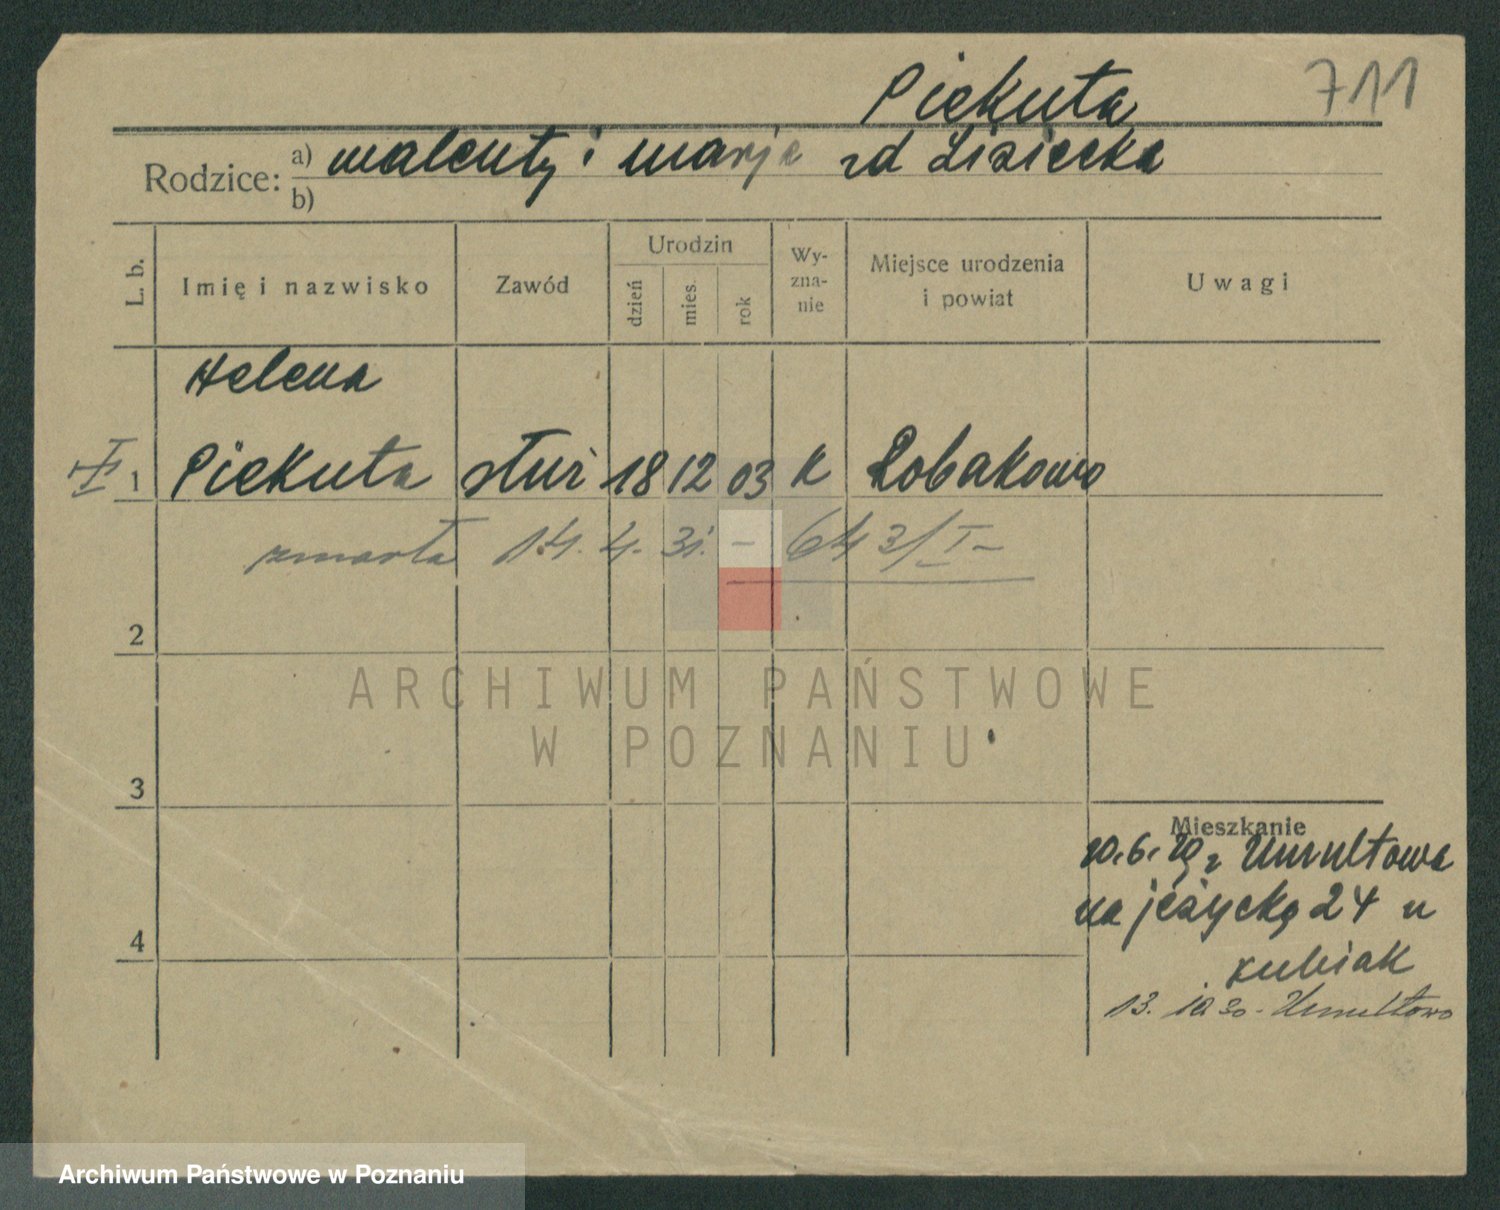 Piekuta 711
Rodzice: a) Walenty i Marja zd Lisiecka
b)
L. b. Imię i nazwisko Zawód Urodzin dzień mies. rok Wy-zna-nie Miejsce urodzenia i powiat Uwagi
Helena
1 Piekuta służ 18 12 03 k Robakowo
zmarła 14. 4. 31. - 643/I-
2
ARCHIWUM PAŃSTWOWE
W POZNANIU
3
Mieszkanie
20.6.29 z Umultowa
na jeżycką 24 u
4
Kubiak
13. 10 30 - Umultowo
Archiwum Państwowe w Poznaniu